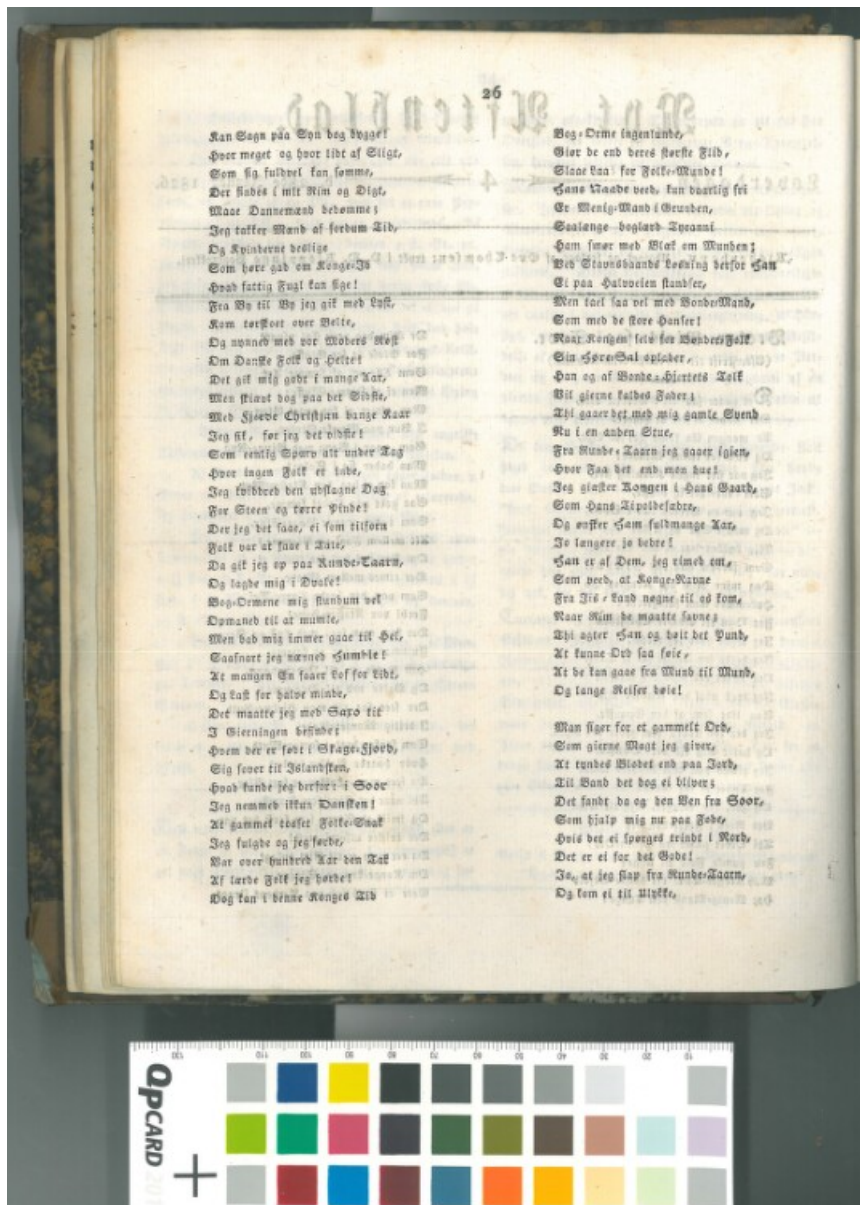 26
Kan Sagn paa Syn dog bygge!
Hvor meget og hvor lidt af Sligt,
Som sig fuldvel kan sømme,
Der findes i mit Rim og Digt,
Maae Dannemænd bedømme;
Jeg takker Mænd af fordum Tid,
Og Kvinderne deslige
Som høre gad om Konge-Id
Hvad fattig Fugl kan sige!
Fra By til By jeg gik med Lyst,
Kom tørskoet over Belte,
Og nynned med vor Moders Røst
Om Danske Folk og Helte!
Det gik mig godt i mange Aar,
Men skiævt dog paa det Sidste,
Med Fjerde Christjæn bange Kaar
Jeg fik, før jeg det vidste!
Som eenlig Spurv alt under Tag
Hvor ingen Folk er inde,
Jeg kviddred den udslagne Dag
For Steen og tørre Pinde!
Der jeg det saae, ei som tilforn
Folk var at faae i Tale,
Da gik jeg op paa Runde-Taarn,
Og lagde mig i Dvale!
Bog-Ormene mig stundum vel
Opmaned til at mumle,
Men bad mig immer gaae til Hel,
Saasnart jeg nævned Humble!
At mangen En faaer Lof for Lidt,
Og Last for halve minde,
Det maatte jeg med Saxo tit
I Gierningen befinde;
Hvem der er født i Skage-Fjord,
Sig fover til Islandsken,
Hvad kunde jeg derfor: i Soor
Jeg nemmed ikkun Dansken!
At gammel tosset Folke-Snak
Jeg fulgde og jeg førde,
Var over hundred Aar den Tak
Af lærde Folk jeg hørde!
Dog kan i denne Konges Tid
Bog-Orme ingenlunde,
Giør de end deres største Flid,
Slaae Laa for Folke-Munde!
Hans Naade veed, kun daarlig fri
Er Menig-Mand i Grunden,
Saalænge boglærd Tyranni
Ham smør med Blæk om Munden;
Ved Stavnsbaands Løsning derfor Han
Ei paa Halvveien standser,
Men tael saa vel med Bonde-Mand,
Som med de store Hanser!
Naar Kongen selv for Bonder-Folk
Sin Høre-Sal oplader,
Han og af Bonde-Hjertets Tolk
Vil gierne kaldes Fader;
Thi gaaer det med mig gamle Svend
Nu i en anden Stue,
Fra Runde-Taarn jeg gaaer igien,
Hvor Faa det end mon hue!
Jeg giæster Kongen i Hans Gaard,
Som Hans Tipoldefædre,
Og ønsker Ham fuldmange Aar,
Jo længere jo bedre!
Han er af Dem, jeg rimed om,
Som veed, at Konge-Navne
Fra Iis-Land nøgne til os kom,
Naar Rim de maatte savne;
Thi agter Han og høit det Pund,
At kunne Ord saa føie,
At de kan gaae fra Mund til Mund,
Og lange Reiser døie!
Man siger for et gammelt Ord,
Som gierne Magt jeg giver,
At tyndes Blodet end paa Jord,
Til Vand det dog ei bliver;
Det fandt da og den Ven fra Soor,
Som hjalp mig nu paa Føde,
Hvis det ei spørges trindt i Nord,
Det er ei for det Gode!
Jo, at jeg slap fra Runde-Taarn,
Og kom ei til Ulykke,